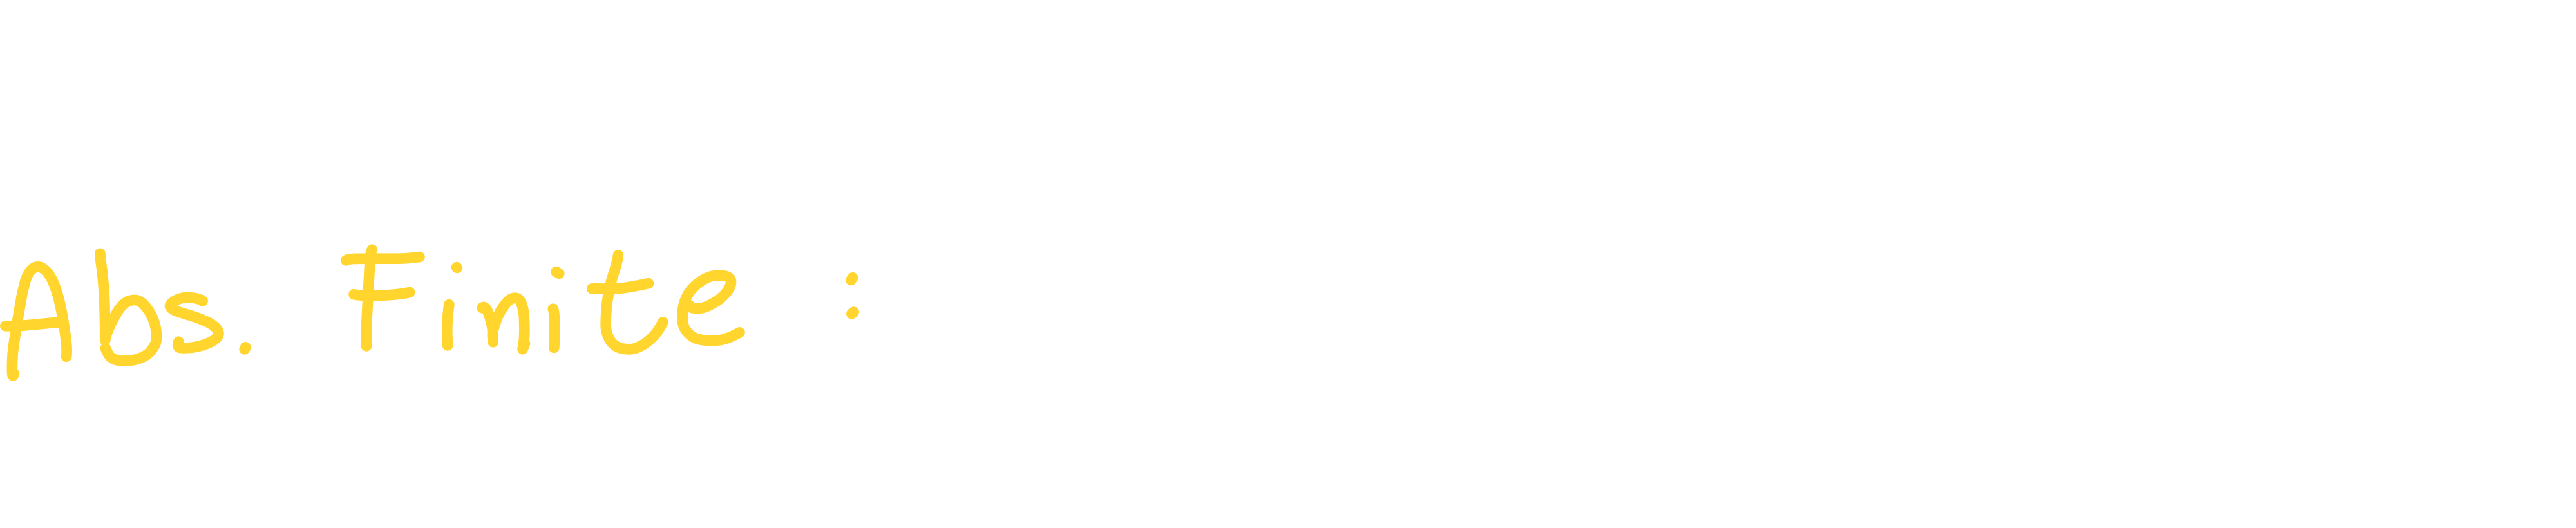 Abs. Finite :